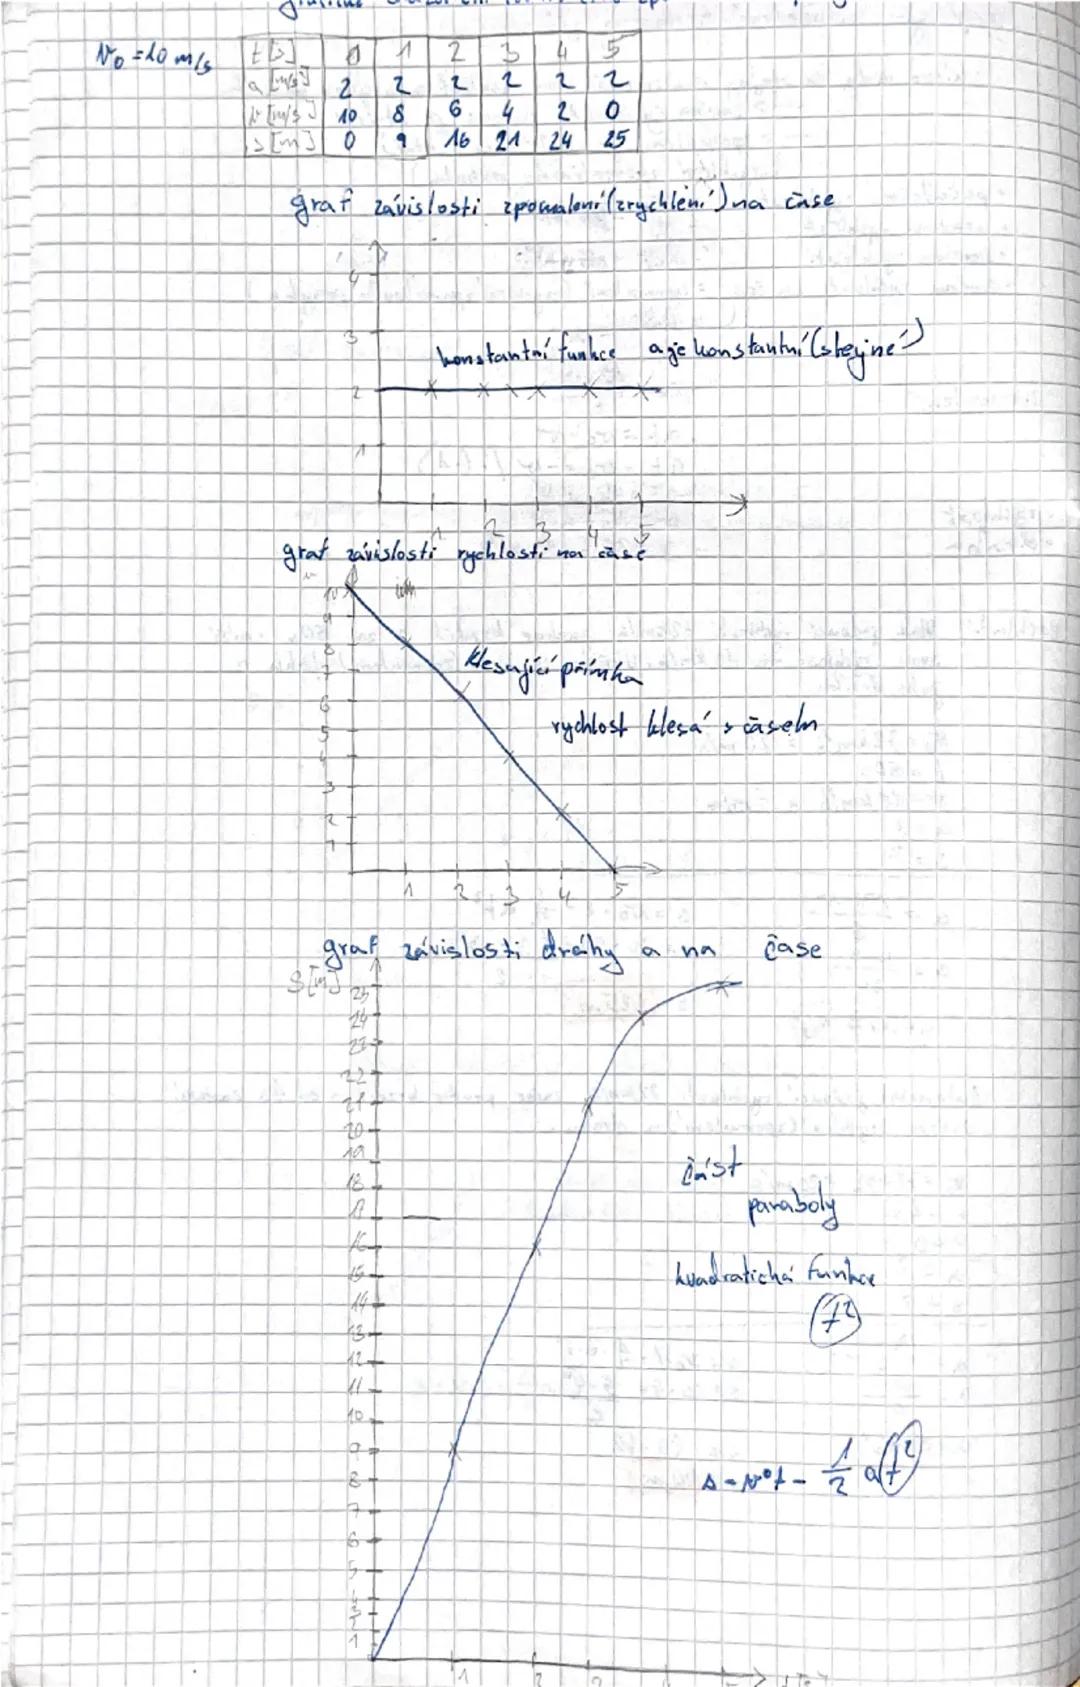 v₀ = 10 m/s
t [s] 0 1 2 3 4 5
a [m/s²] 2 2 2 2 2 2
v [m/s] 10 8 6 4 2 0
s [m] 0 9 16 21 24 25
graf závislosti zpomalení (zrychlení) na čase
4
3
konstantní funkce a je konstantní (stejné)
2
1
1 2 3 4 5
graf závislosti rychlosti na čase
v
10
9
8
7
klesající přímka
6
rychlost klesá s časem
5
4
3
2
1
1 2 3 4 5
graf závislosti dráhy a na čase
s [m]
25
24
23
22
21
20
19
část
18
paraboly
17
16
kvadratická funkce
15
t²
14
13
12
11
10
9
s = v₀t - 1/2 at²
8
7
6
5
4
3
2
1
1 2 3